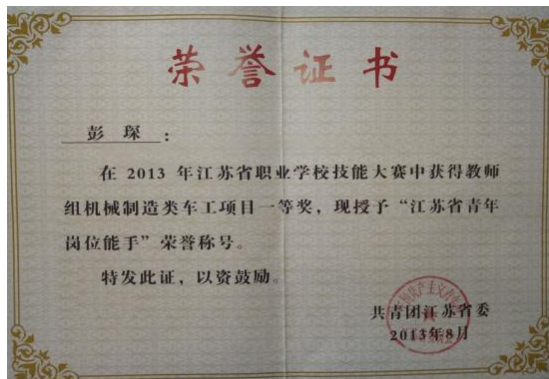 荣誉证书
彭琛：
在 2013 年江苏省职业学校技能大赛中获得教师
组机械制造类车工项目一等奖，现授予“江苏省青年
岗位能手”荣誉称号。
特发此证，以资鼓励。
共青团江苏省委
2013年8月